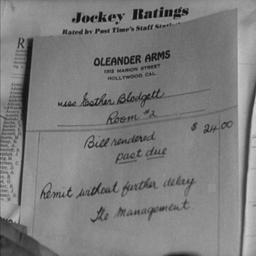 Jockey Ratings
Rated by Post Time's Staff
OLEANDER ARMS
1312 MARION STREET
HOLLYWOOD, CAL.
Miss Esther Blodgett
Room #2
Bill rendered $ 24.00
past due
Remit without further delay
The Management